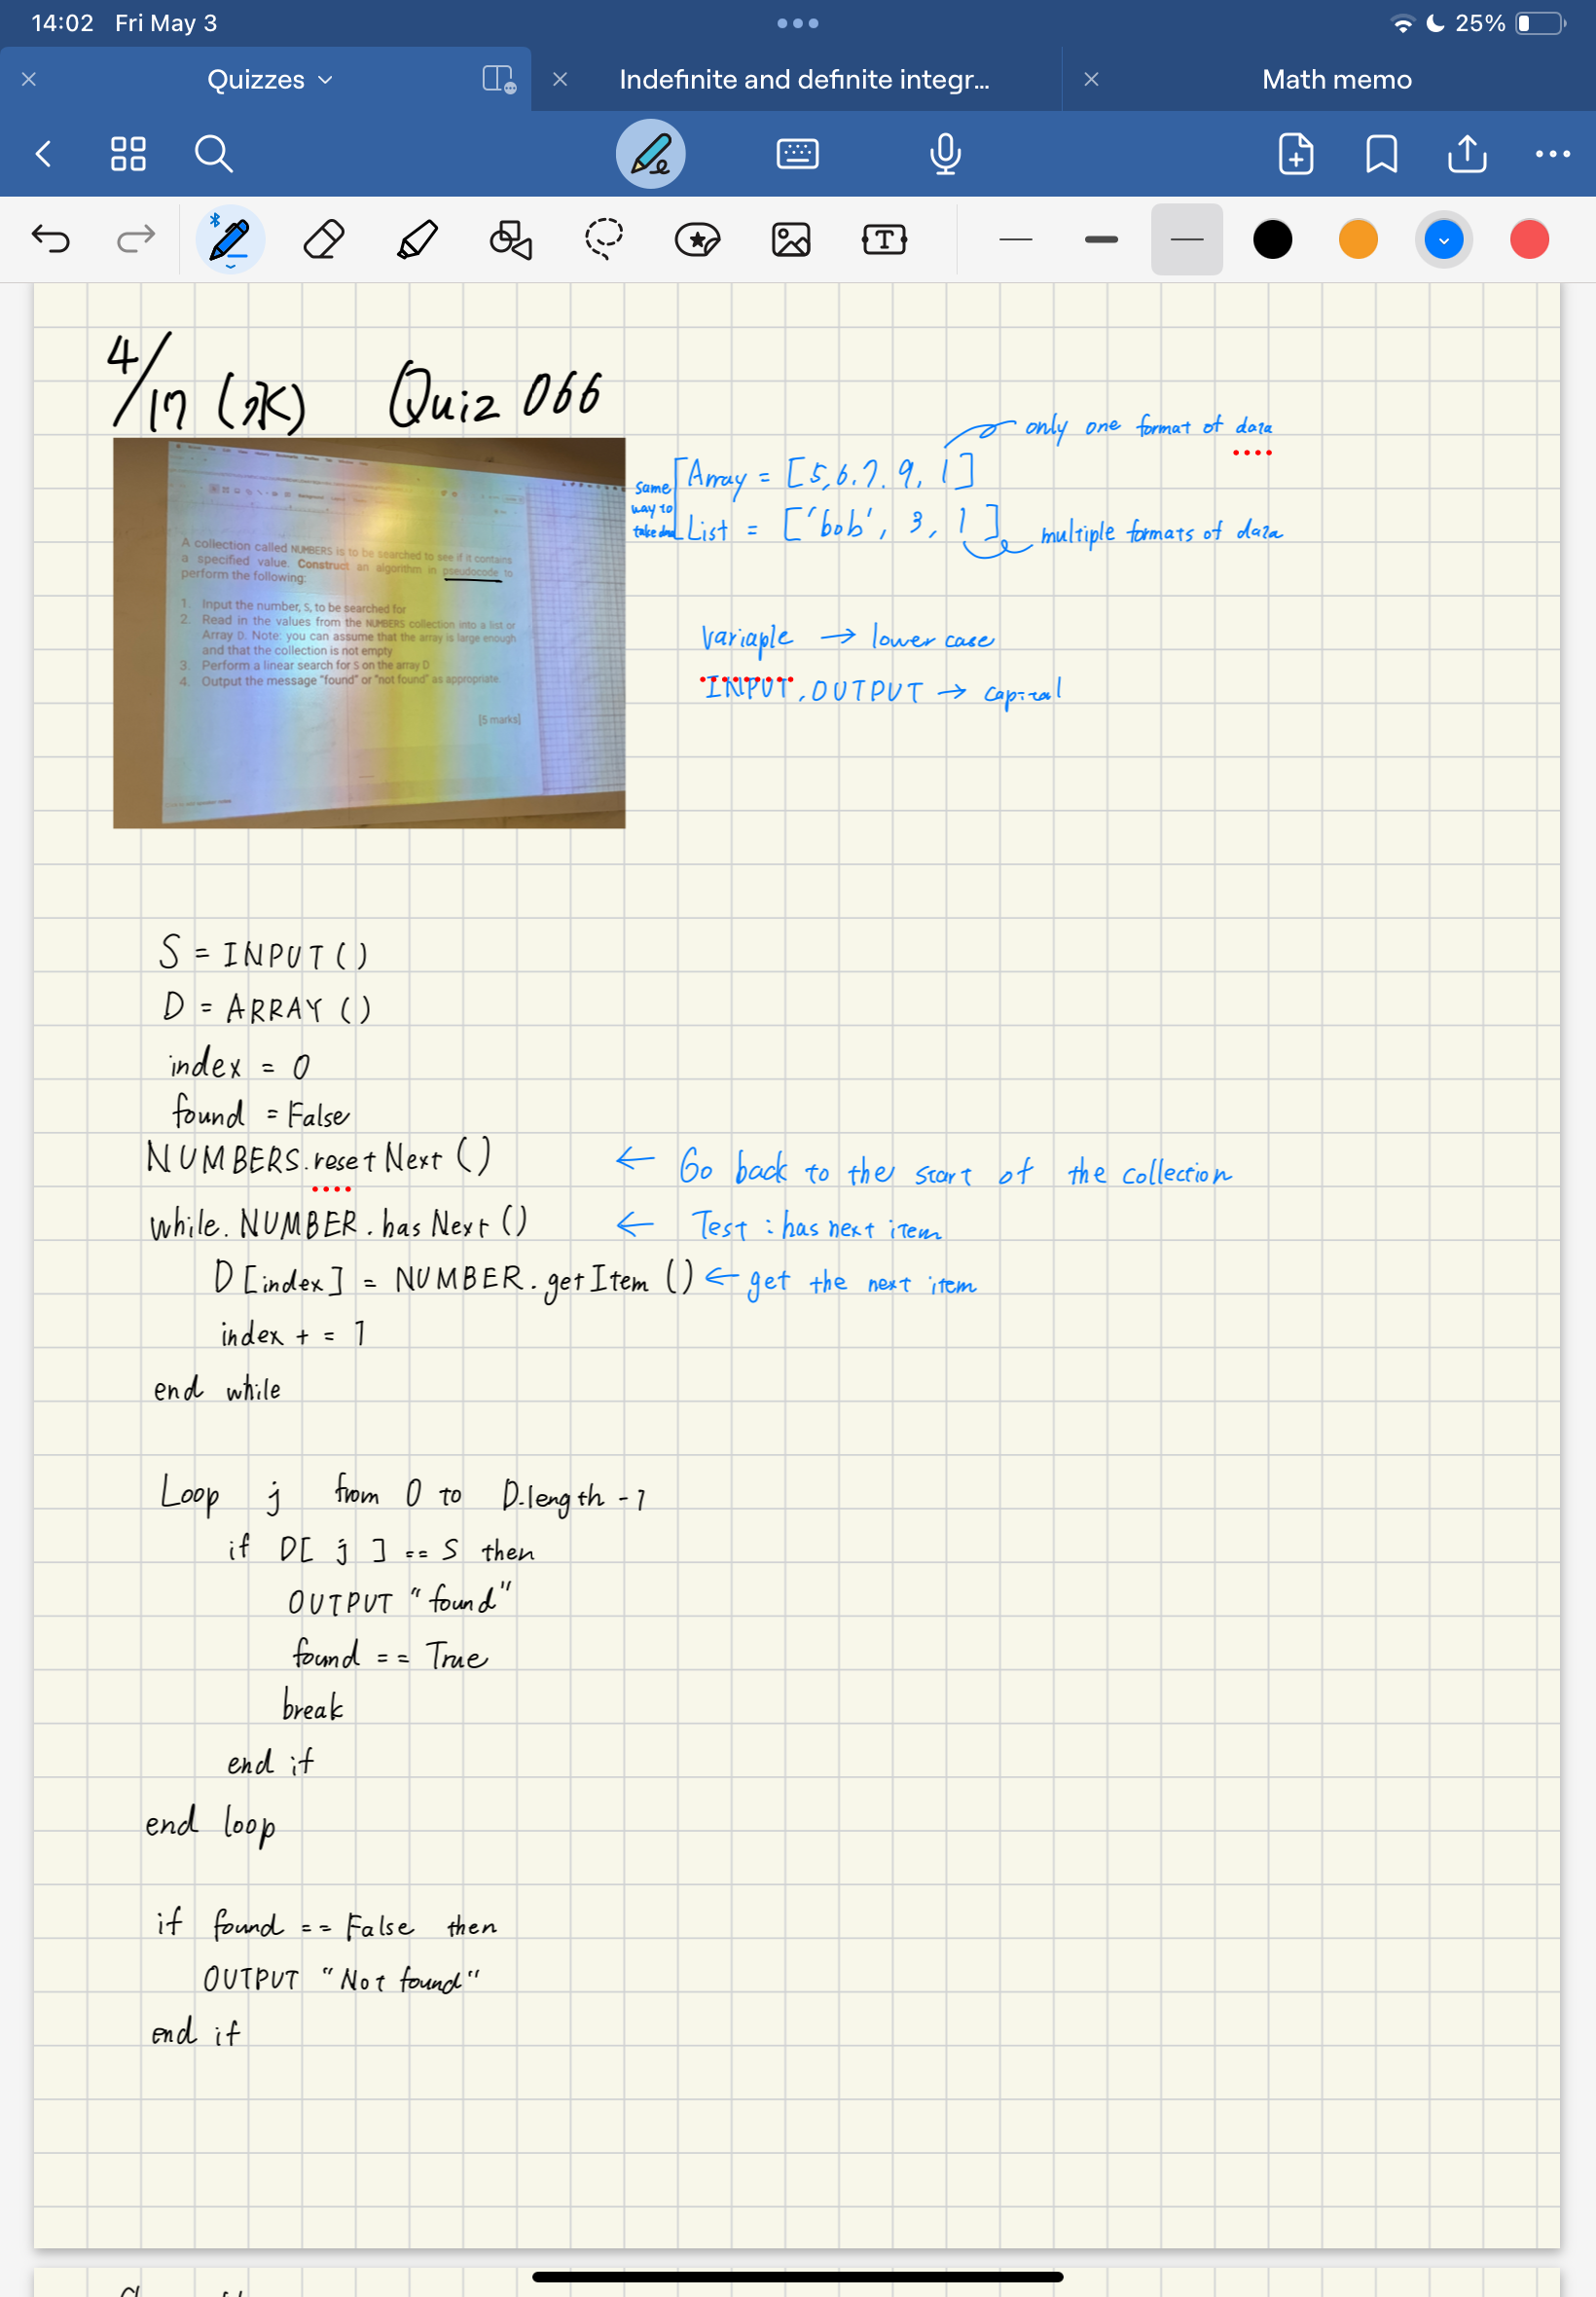 14:02 Fri May 3
25%
Quizzes
Indefinite and definite integr...
Math memo
4/17 (水) Quiz 066
A collection called NUMBERS is to be searched to see if it contains
a specified value. Construct an algorithm in pseudocode to
perform the following:
1. Input the number, S, to be searched for
2. Read in the values from the NUMBERS collection into a list or
Array D. Note: you can assume that the array is large enough
and that the collection is not empty
3. Perform a linear search for S on the array D
4. Output the message "found" or "not found" as appropriate
[5 marks]
only one format of data
same
way to
Array = [5, 6, 7, 9, 1]
List = ['bob', 3, 1]
multiple formats of data
Variable → lower case
INPUT, OUTPUT → capital
S = INPUT()
D = ARRAY()
index = 0
found = False
NUMBERS.resetNext() ← Go back to the start of the collection
while.NUMBER.hasNext() ← Test : has next item
D[index] = NUMBER.getItem() ← get the next item
index += 1
end while
Loop j from 0 to D.length - 1
if D[j] == S then
OUTPUT "found"
found == True
break
end if
end loop
if found == False then
OUTPUT "Not found"
end if